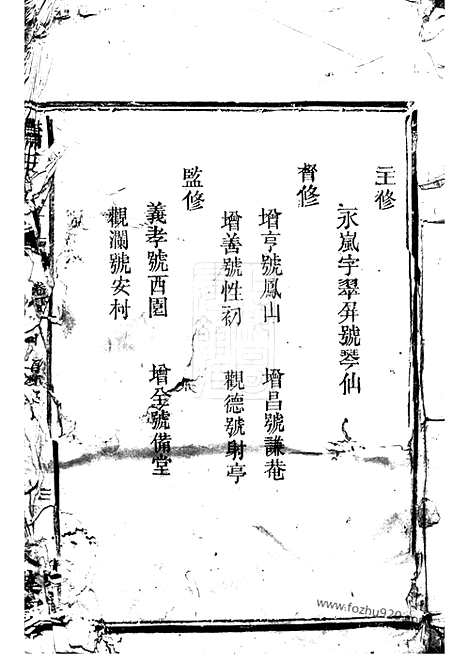 主修
永嵐字翠屏號琴仙
齊修
增亨號鳳山 增昌號謙菴
增善號性初 觀德號射亭
監修
義孝號西園 增全號備堂
觀瀾號安村
三
www.fozhu920.com